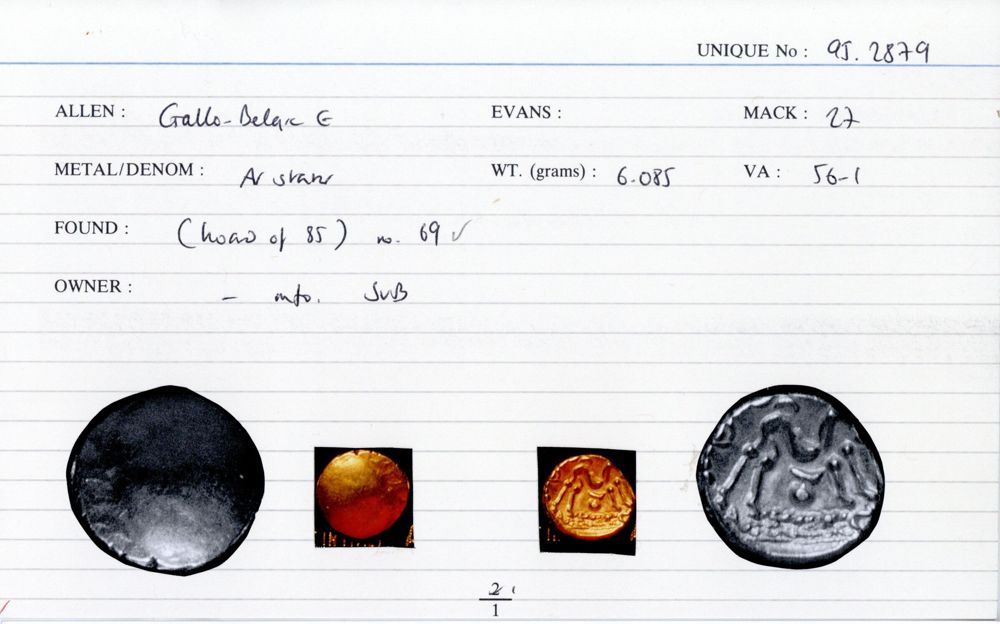 UNIQUE No : 95. 2879
ALLEN : Gallo-Belgic E EVANS : MACK : 27
METAL/DENOM : AV stater WT. (grams) : 6.085 VA : 56-1
FOUND : (hoard of 85) no. 69 ✓
OWNER : - info. SVB
2
1